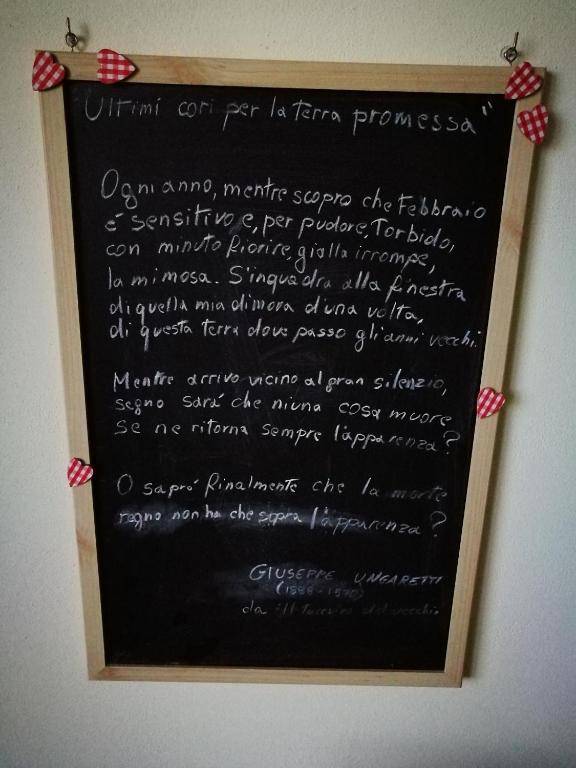 Ultimi cori per la terra promessa"
Ogni anno, mentre scopro che Febbraio
é sensitivo e, per pudore, Torbido,
con minuto fiorire, gialla irrompe,
la mimosa. S'inquadra alla finestra
di quella mia dimora d'una volta,
di questa terra dove passo gli anni vecchi.
Mentre arrivo vicino al gran silenzio,
segno sará che niuna cosa muore
se ne ritorna sempre l'apparenza?
O sapró finalmente che la morte
regno non ha che sopra l'apparenza?
GIUSEPPE UNGARETTI
(1888-1970)
da il Taccuino del vecchio